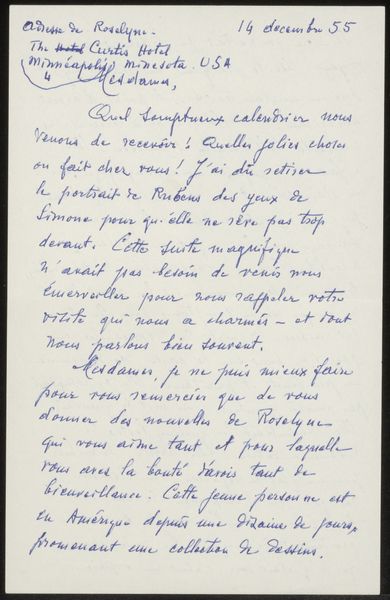 adresse de Roselyne. 14 decembre 55
The Hotel Curtis Hotel
Minnéapolis) Minesota. USA
4 Mesdames,
Quel somptueux calendrier nous
venons de recevoir! Quelles jolies choses
on fait chez vous! J'ai dû retirer
le portrait de Rubens des yeux de
Simone pour qu'elle ne rêve pas trop
devant. Cette suite magnifique
n'avait pas besoin de venir nous
émerveiller pour nous rappeler votre
visite qui nous a charmés - et dont
nous parlons bien souvent.
Mesdames, je ne puis mieux faire
pour vous remercier que de vous
donner des nouvelles de Roselyne
qui vous aime tant et pour laquelle
vous avez la bonté d'avoir tant de
bienveillance. Cette jeune personne est
en Amérique depuis une dizaine de jours,
promenant une collection de dessins.